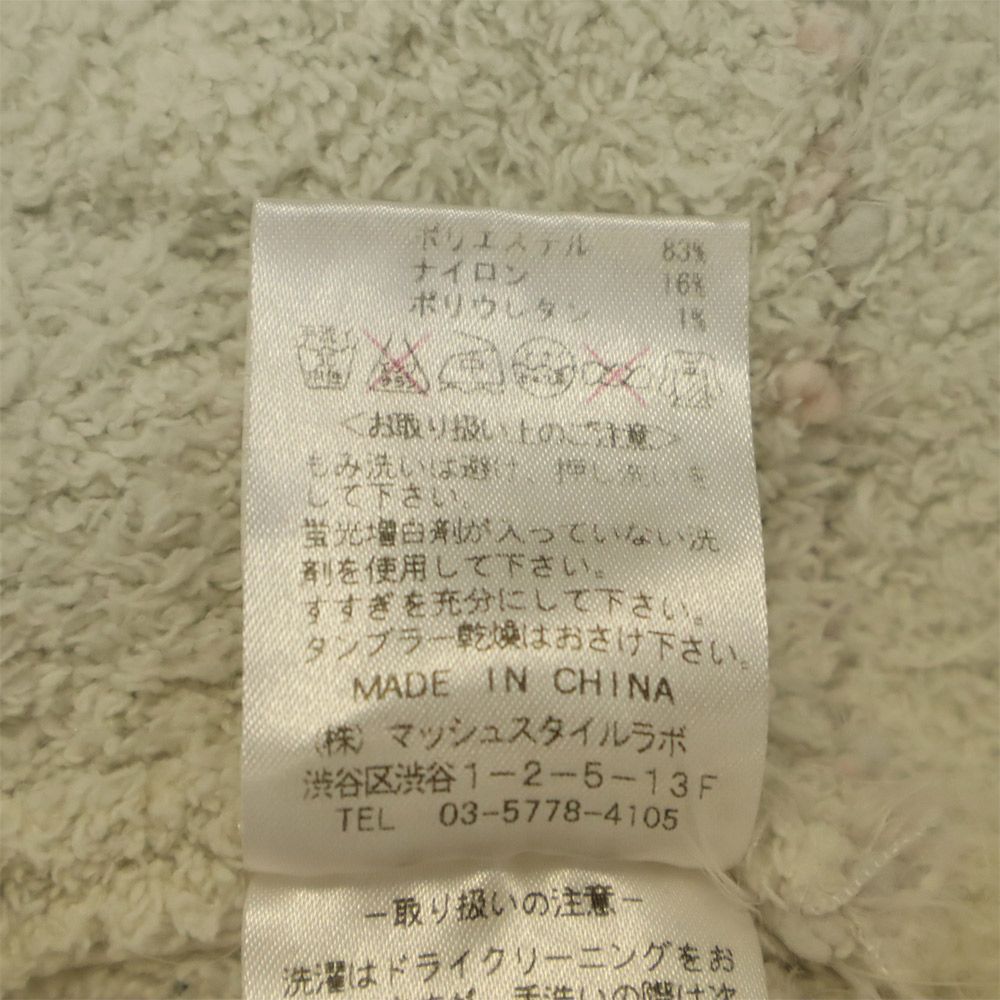 ポリエステル 83%
ナイロン 16%
ポリウレタン 1%
中
<お取り扱い上のご注意>
もみ洗いは避け、押し洗いを
して下さい。
蛍光増白剤が入っていない洗
剤を使用して下さい。
すすぎを充分にして下さい。
タンブラー乾燥はおさけ下さい。
MADE IN CHINA
(株) マッシュスタイルラボ
渋谷区渋谷1-2-5-13F
TEL 03-5778-4105
-取り扱いの注意-
洗濯はドライクリーニングをお
手洗いの際は次